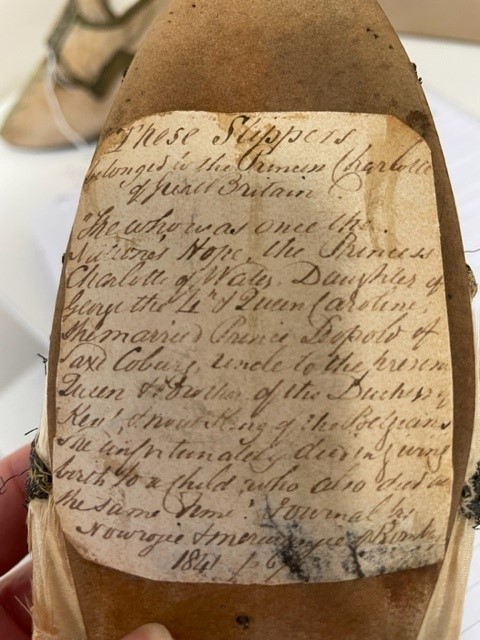 These Slippers
belonged to the Princess Charlotte
of Great Britain.
"She who was once the
Nation's Hope, the Princess
Charlotte of Wales, Daughter of
George the 4th & Queen Caroline,
She married Prince Leopold of
Saxe Coburg, uncle to the present
Queen & Brother of the Duchess of
Kent, & now King of the Belgians
She unfortunately died in giving
birth to a child, who also died at
the same time." Journal by
Nowrojee & Merwanjee of Bombay
1841 p